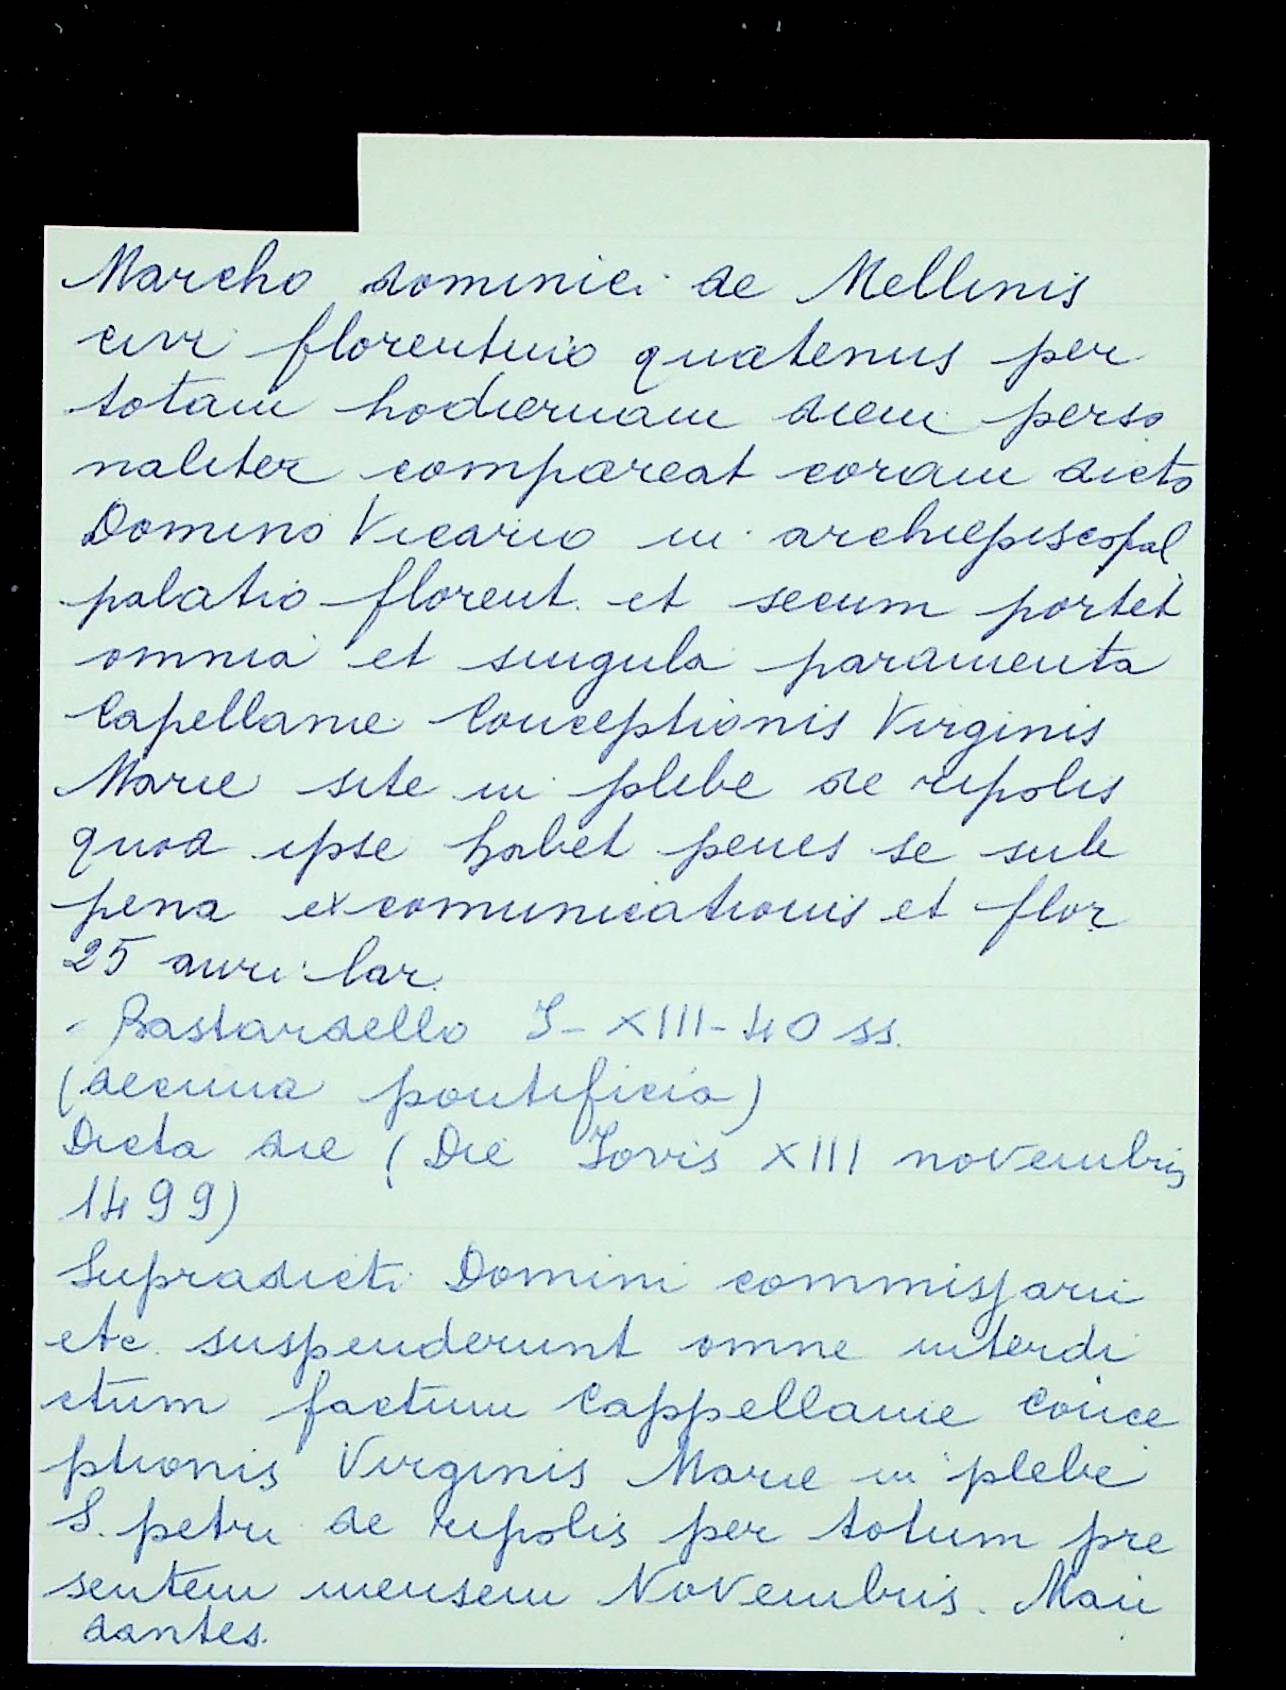 Marcho dominici de Mellinis
civi florentino quatenus per
totam hodiernam diem perso
naliter compareat coram dicto
Domino Vicario in archiepiscopal
palatio florent. et secum portet
omnia et singula paramenta
Capellanie Conceptionis Virginis
Marie site in plebe de ripolis
quod ipse habet penes se sub
pena excomunicationis et flor
25 auri lar.
- Bastardello I - XIII - 40 ss.
(decima pontificia)
Dicta die (Die Jovis XIII novembris
1499)
Supradicti Domini commissarii
etc. suspenderunt omne interdi
ctum factum Cappellanie Conce
ptionis Virginis Marie in plebe
S. petri de ripolis per totum pre
sentem mensem Novembris. Man
dantes.